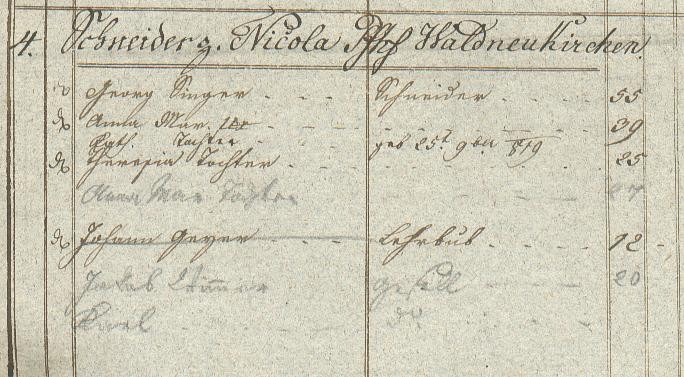 4. Schneider z. Nicola Pfs Waldneukirchen.
Georg Singer - - - Schneider - - - 55
Anna Mar. - - - 39
Kath. Tochter - geb 25t. 9ber 819
Theresia Tochter - - - 25
Anna Mar Tochter - - - 27
Johann Geyer - - - Lehrbub - - - 12
Jakob - - - Gesell - - - 20
Karl - - - do